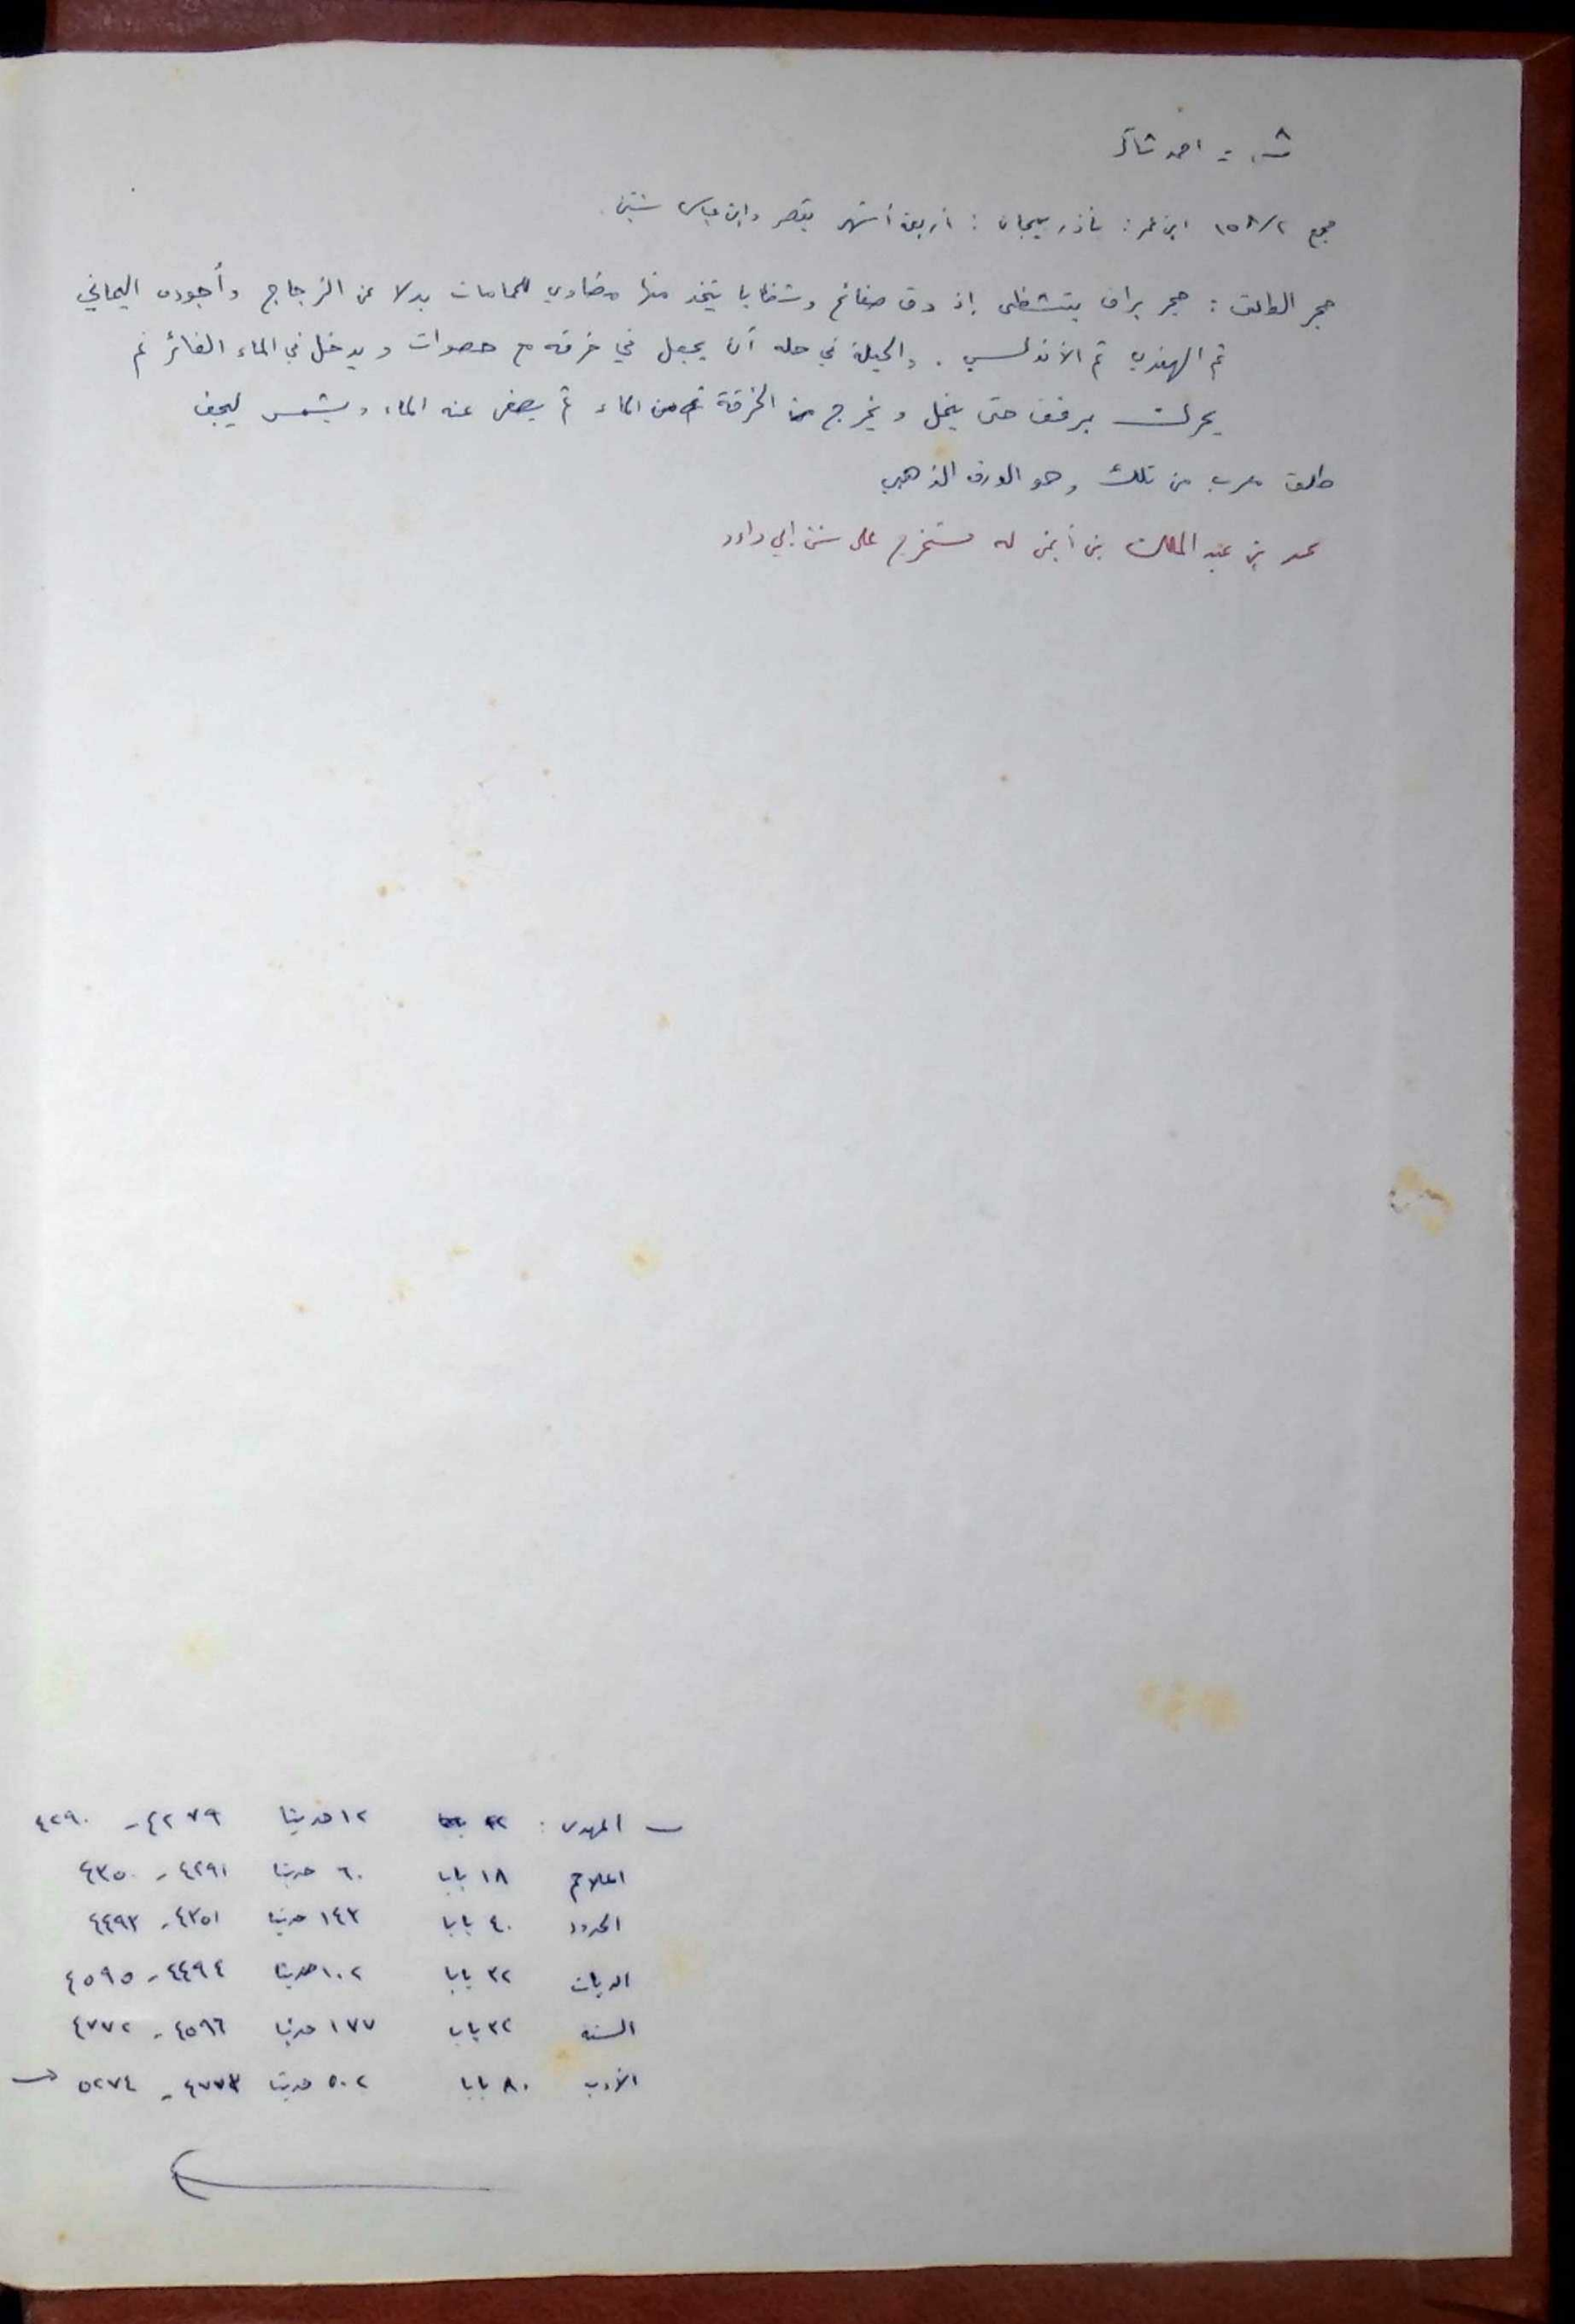 ش = احمد شاكر
مجمع ١٥٨/٢ ابن عمر: بأذربيجان: أربعة أشهر يقصر وابن عباس سنتين.
حجر الطلق: حجر براق يتشظى إذ دق صفائح وشظايا يتخذ منها مضاوي للحمامات بدلا عن الزجاج وأجوده اليماني
ثم الهندي ثم الأندلسي. والحيلة في حله أن يجعل في خرقة مع حصوات ويدخل في الماء الفاتر ثم
يحرك برفق حتى ينحل ويخرج من الخرقة من الماء ثم يصفى عنه الماء ويشمس ليجف
طلق معرب من تلك وهو الورق الذهبي
محمد بن عبد الملك بن أيمن له مستخرج على سنن أبي داود
المهدي: ١٢ حديثا ٤٢٧٩ - ٤٢٩٠
الملاحم ١٨ بابا ٦٠ حديثا ٤٢٩١ - ٤٣٥٠
الحدود ٤٠ بابا ١٤٣ حديثا ٤٣٥١ - ٤٤٩٣
الديات ٣٢ بابا ١٠٢ حديثا ٤٤٩٤ - ٤٥٩٥
السنة ٣٢ بابا ١٧٧ حديثا ٤٥٩٦ - ٤٧٧٢
الأدب ٨٠ بابا ٥٠٢ حديثا ٤٧٧٣ - ٥٢٧٤